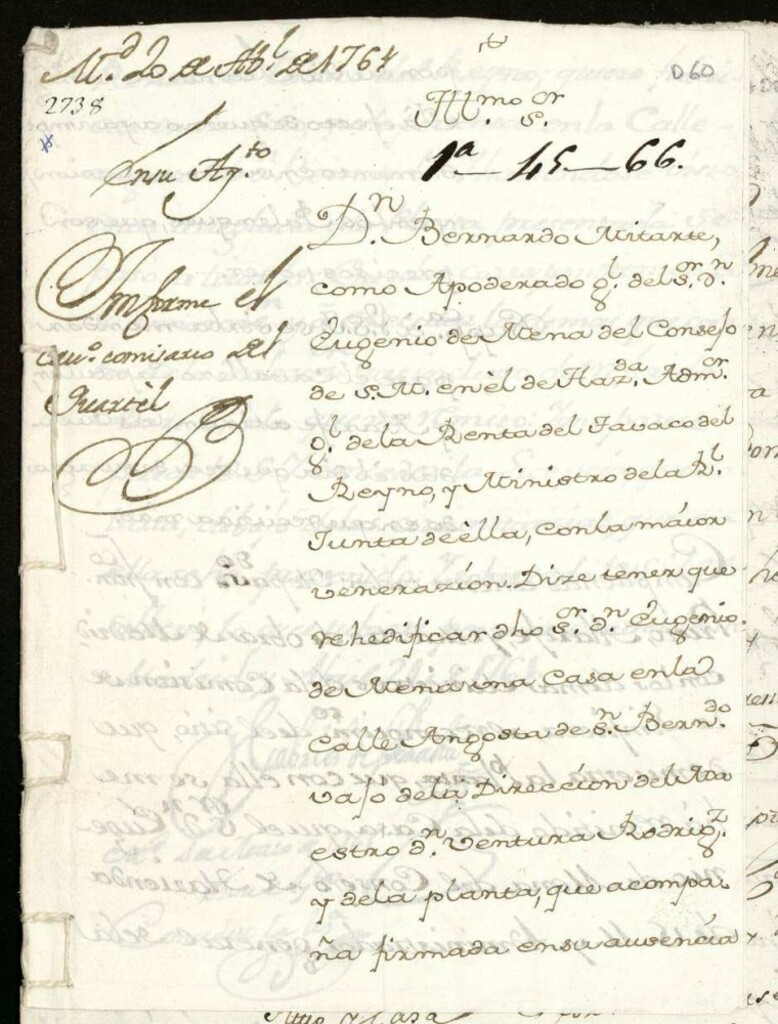 M.d 20 de Ab.l de 1764
2738
D60
Ill.mo s.or
1a - 45 - 66.
En su Ay.to
Informe el
cav.o comisario del
Quartèl
D.n Bernardo Mitarte,
como Apoderado g.l del s.or d.n
Eugenio de Mena del Consejo
de S. M. en èl de Haz.da, Adm.or
g.l de la Renta del Tavaco del
Reyno, y Ministro de la R.l
Junta de èlla, con la màior
venerazion. Dize tener que
rehedificar dho s.or d.n Eugenio
de Mena una Casa en la
Calle Angosta de s.n Bern.do
vajo de la Direccion del Ma
estro d.n Ventura Rodrig.z
y de la planta, que acompa
ña firmada en su ausència